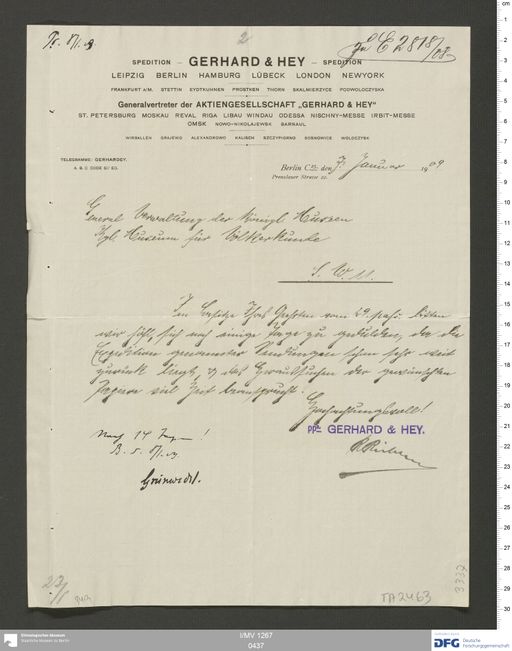 Pr. 8/1.09
2
Zu E 2818/08
SPEDITION — GERHARD & HEY — SPEDITION
LEIPZIG BERLIN HAMBURG LÜBECK LONDON NEWYORK
FRANKFURT A/M. STETTIN EYDTKUHNEN PROSTKEN THORN SKALMIERZYCE PODWOLOCZYSKA
Generalvertreter der AKTIENGESELLSCHAFT „GERHARD & HEY“
ST. PETERSBURG MOSKAU REVAL RIGA LIBAU WINDAU ODESSA NISCHNY-MESSE IRBIT-MESSE
OMSK NOWO-NIKOLAJEWSK BARNAUL
WIRBALLEN GRAJEWO ALEXANDROWO KALISCH SZCZYPIORNO SOSNOWICE WOLOCZYSK
TELEGRAMME: GERHARDEY.
A. B. C. CODE 5th ED.
Berlin C., den 7. Januar 1909
Prenzlauer Strasse
General Verwaltung der Königl. Museen
Kgl. Museum für Völkerkunde
S. W. 11.
Im Besitze Ihres Geehrten vom 29. pass. bitten
wir höfl., sich noch einige Tage zu gedulden, da die
Expedition genannter Sendungen schon sehr weit
zurück liegt, & das Heraussuchen der gewünschten
Papiere viel Zeit beansprucht.
Hochachtungsvoll!
ppa GERHARD & HEY.
Nach 14 Tagen!
B. 8/1.09
Grünwedel.
23/1
TA2463
3332
Ethnologisches Museum
Staatliche Museen zu Berlin
I/MV 1267
0437
DFG Deutsche
Forschungsgemeinschaft